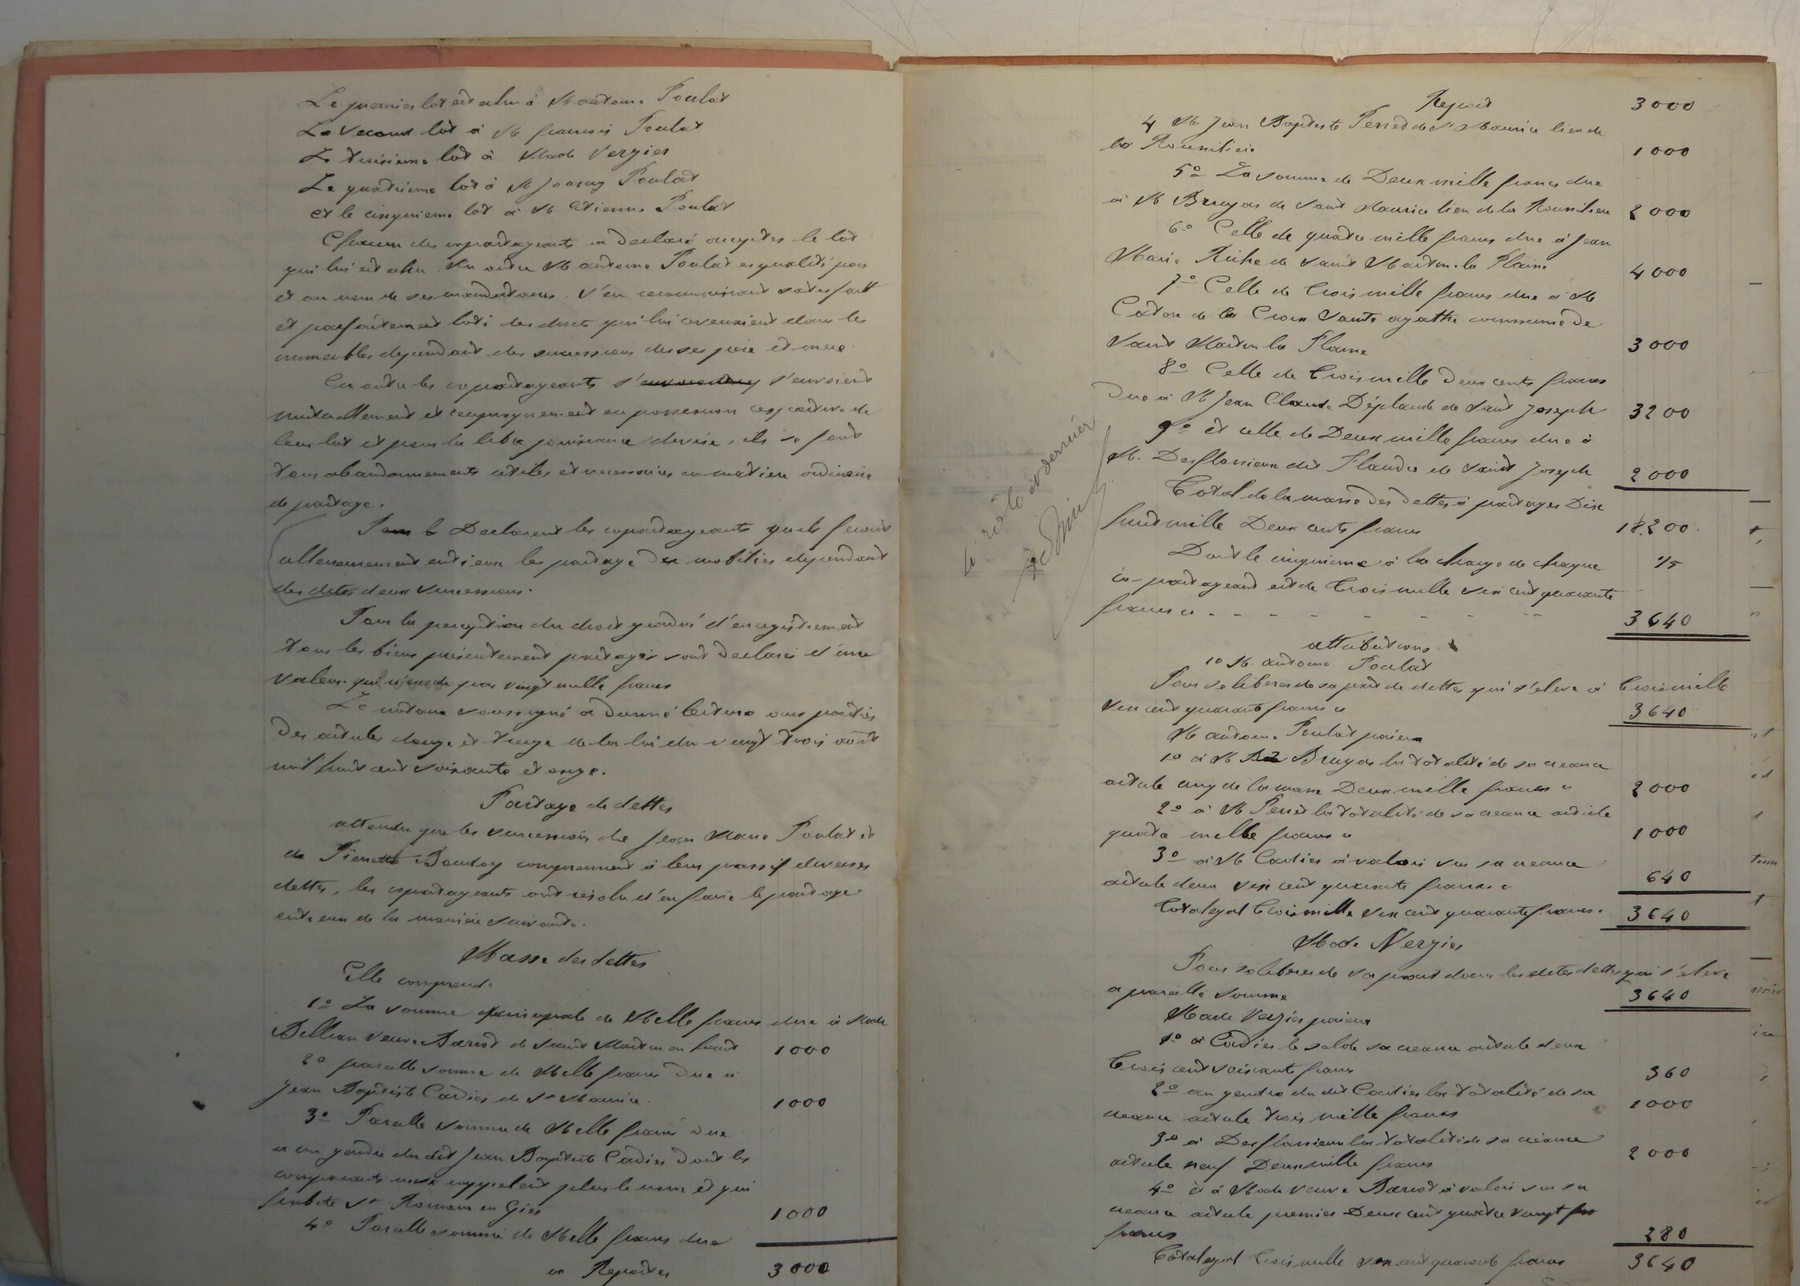 Le premier lot est echu à M antoine Poulat
Le second lot à M françois Poulat
Le troisieme lot à Made Vergier
Le quatrieme lot à M Joanny Poulat
et le cinquieme lot à M Etienne Poulat
Chacun des copartageants a declaré accepter le lot
qui lui est echu. En outre M antoine Poulat es qualité pour
et au nom de ses mandataires, s'en reconnaissant satisfait
et parfaitement loti des droits qui lui avenaient dans les
immeubles dependant des successions de ses père et mere
En outre les copartageants s'envoient
mutuellement et reciproquement en possession respective de
leur lot et pour la libre jouissance divise, ils se font
tous abandonnements utiles et necessaires en matiere ordinaire
de partage.
Declarent les copartageants qu'ils feront
ulterieurement entre eux le partage du mobilier dependant
des dites deux successions.
Pour la perception du droit gradué d'enregistrement
tous les biens presentement partagés sont declarés d'une
valeur qui n'excede pas vingt mille francs
Le notaire soussigné a donné lecture aux parties
des articles douze et treize de la loi du vingt trois août
mil huit cent soixante et onze.
Partage de dettes
attendu que les successions de Jean Marie Poulat et
de Pierrette Boudoy comprennent à leur passif diverses
dettes, les copartageants ont résolu d'en faire le partage
entre eux de la maniere suivante.
Masse des dettes
Elle comprend:
1º La somme principale de Mille francs due à Made
veuve Barriot de Saint Martin en haut 1000
2º pareille somme de Mille francs due à
Jean Baptiste Cartier de St Maurice. 1000
3º Pareille somme de Mille francs due
a un gendre du dit Jean Baptiste Cartier dont les
comparants ne se rappelent plus le nom et qui
habite St Romain en Gier 1000
4º Pareille somme de Mille francs due
a Reporter 3000
Report 3000
4 M Jean Baptiste Perret de St Maurice lieu de
la 1000
5º La somme de Deux mille francs due
à M Bruyas de Saint Maurice lieu de la 2000
6º Celle de quatre mille francs due à Jean
Marie de Saint Martin la Plaine 4000
7º Celle de Trois mille francs due à M
de la Croix Sainte agathe commune de
Saint Martin la Plaine 3000
8º Celle de Trois mille Deux cents francs
due à M Jean Claude Déplaude de Saint Joseph 3200
9º et celle de Deux mille francs due à
M. Desflassieux dit Flandre de Saint Joseph 2000
Total de la masse des dettes à partager Dix
huit mille Deux cents francs 18200
Dont le cinquieme à la charge de chaque
co-partageant est de Trois mille six cent quarante 1/5
francs 3640
attributions
1º M. antoine Poulat
Pour se liberer de sa part de dettes qui s'eleve à Trois mille
six cent quarante francs 3640
M antoine Poulat paiera
1º à M Bruyas la totalité de sa creance
article cinq de la masse Deux mille francs 2000
2º à M Perret la totalité de sa creance article
quatre mille francs 1000
3º à M Cartier à valoir sur sa creance
article deux six cent quarante francs 640
Total egal Trois mille six cent quarante francs. 3640
Made Vergier
Pour se liberer de sa part dans les dites dettes qui s'eleve
a pareille somme 3640
Made Vergier paiera
1º à Cartier le solde sa creance article deux
Trois cent soixante francs 360
2º au gendre du dit Cartier la totalité de sa
creance article trois mille francs 1000
3º à Desflassieux la totalité de sa créance
article neuf Deux mille francs 2000
4º et à Made veuve Barriot à valoir sur sa
creance article premier Deux cent quatre vingt
francs 280
Total egal Trois mille six cent quarante francs 3640